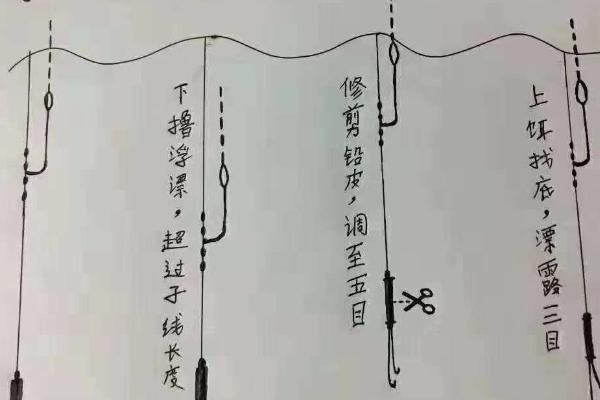 下撸浮漂，超过子线长度
修剪铅皮，调至五目
上饵找底，漂露三目